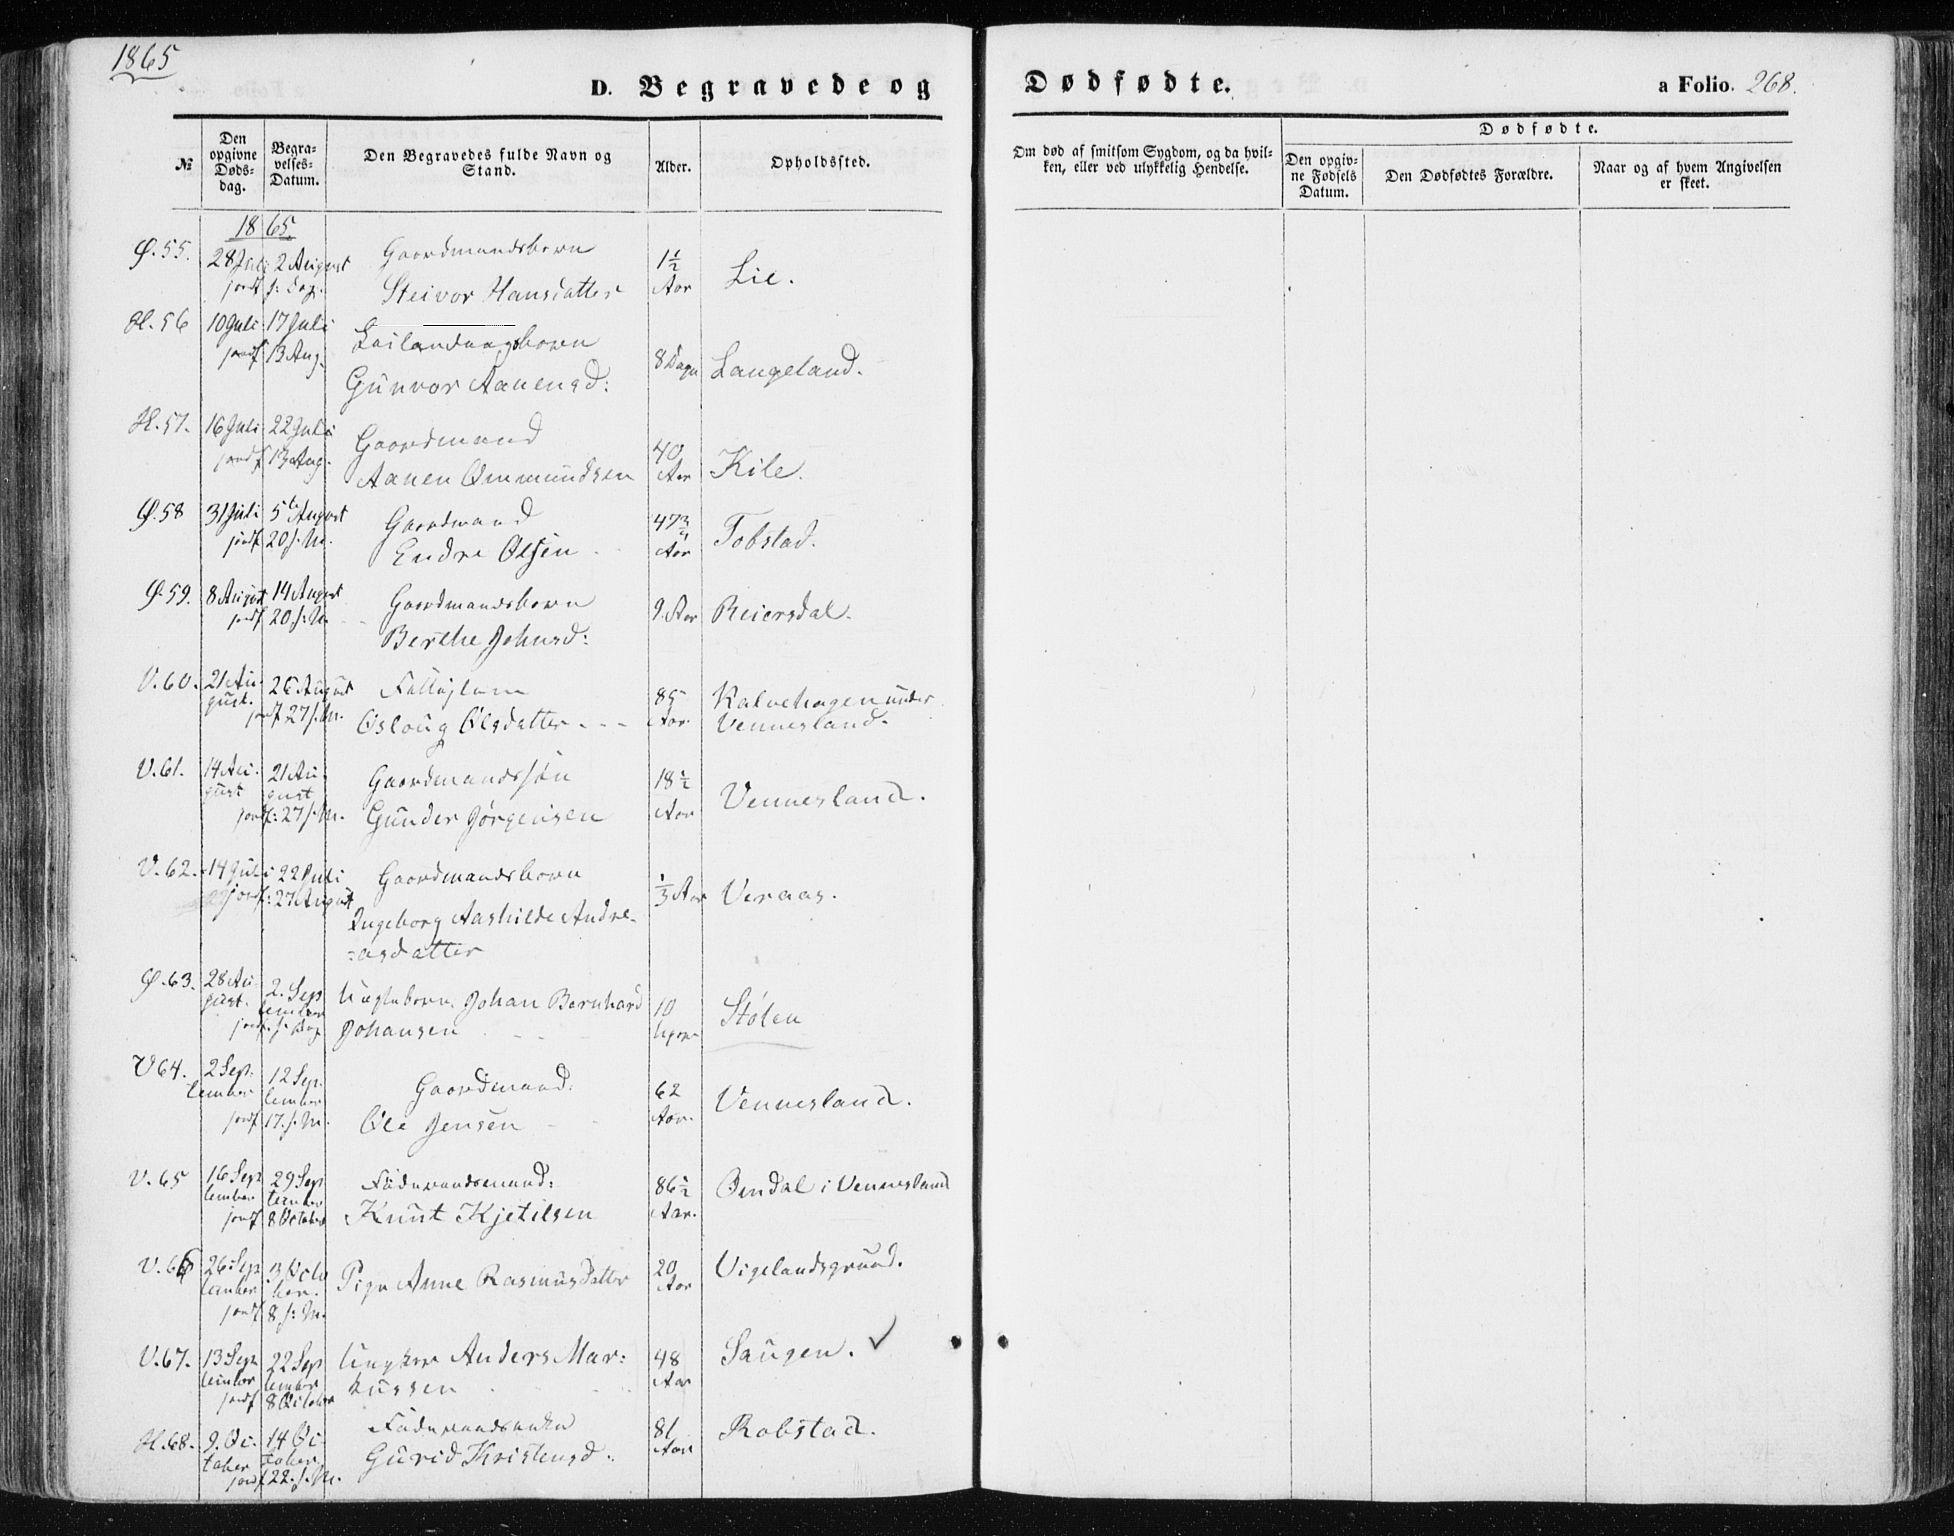 1865
D. Begravede og Dødfødte.
a Folio. 268.
№
Den opgivne Døds-dag.
Begra-velses-Datum.
Den Begravedes fulde Navn og Stand.
Alder.
Opholdssted.
Om død af smitsom Sygdom, og da hvil-ken, eller ved ulykkelig Hendelse.
Dødfødte.
Den opgiv-ne Fødsels Datum.
Den Dødfødtes Forældre.
Naar og af hvem Angivelsen er skeet.
1865.
Ø. 55. 28 Juli 2 August Gaardmandsbarn 1½ Aar Lie.
jordf. s. Dag. Steivor Hansdatter
H. 56 10 Juli 17 Juli
jordf 13 Aug. 8 Dage Langeland.
Gunvor Aanensd:
H. 57. 16 Juli 22 Juli Gaardmand 40 Aar Kile.
jordf 13 Aug. Aanen Ommundsen
Ø. 58 31 Juli 5te August Gaardmand 47¾ Aar Tobstad.
jordf 20 s. M. Endre Olsen
Ø. 59. 8 August 14 August Gaardmandsbarn 9 Aar Reiersdal.
jordf 20 s. M. Berthe Johnsd:
V. 60. 21 August. 26 August 85 Aar Kalvehagen under
jordf 27 s. M. Osloug Olsdatter Vennesland.
V. 61. 14 August 21 August Gaardmandssøn 18½ Aar Vennesland.
jordf: 27 s. M. Gunder Jørgensen
V. 62. 14 Juli 22 Juli Gaardmandsbarn ⅓ Aar Veraas.
jordf: 27 August Ingeborg Aashilde Andre-
-asdatter
Ø. 63. 28 August. 2. September Uægtebarn Johan Bernhard 10 Uger Stølen
jordf. s. Dag Johansen
V 64. 2 September 12 September Gaardmand: 62 Aar. Vennesland.
jordf 17. s. M. Ole Jensen
V. 65 16 September 29 September Føderaadsmand: 86½ Aar. Omdal i Vennesland
jordf 8 October Knut Kjetilsen
V. 66 26 September 3 October. Pige Anne Rasmusdatter 20 Aar Vigelandsgrund.
jordf 8 s. M.
V. 67. 13 September 22 September Ungkar Anders Mar: 48 Aar Saugen.
jordf 8 October kussen
H. 68. 9. October 14 October Føderaadsenke 81 Aar Robstad.
jordf 22. s. M. Gurid Kristensd.